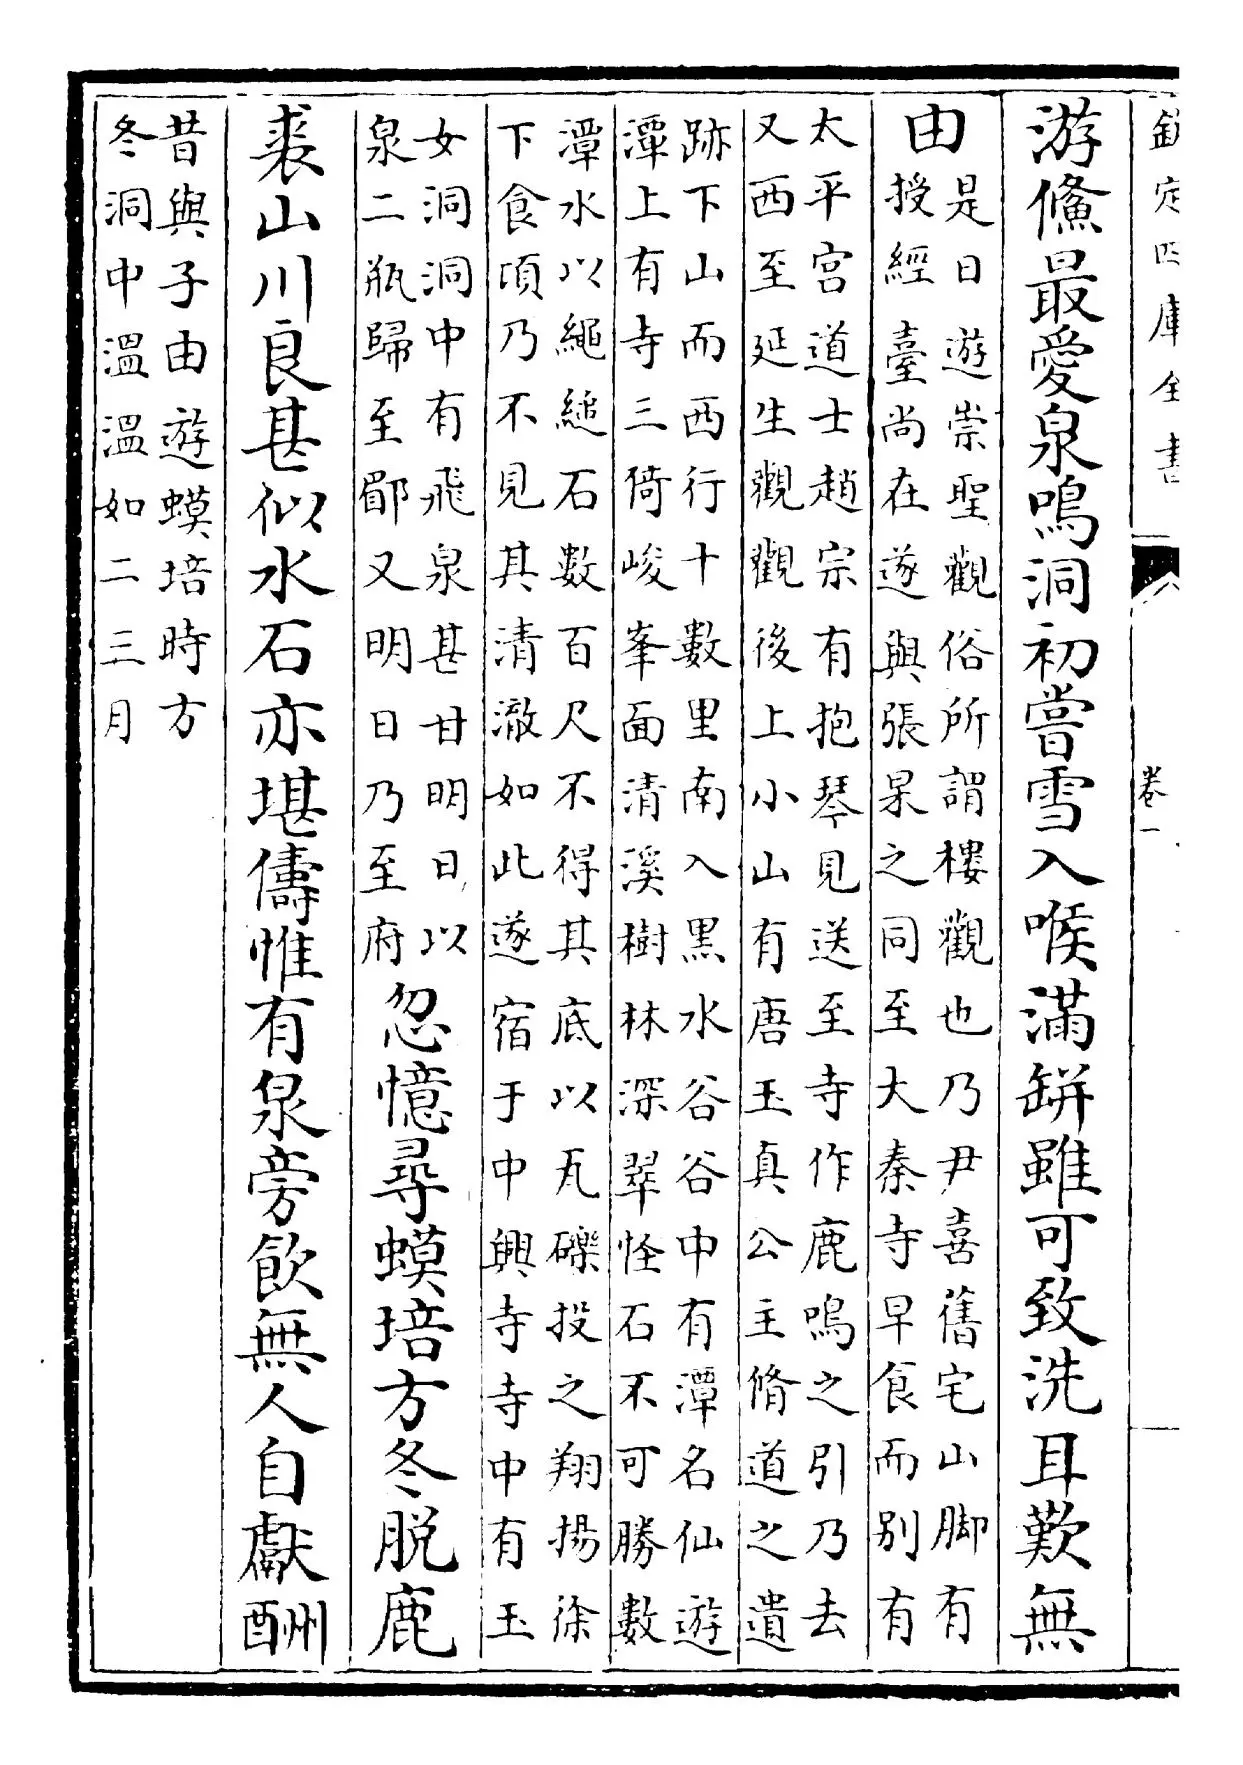 欽定四庫全書 卷一
游鯈最愛泉鳴洞初嘗雪入喉滿缾雖可致洗耳歎無
由
是日遊崇聖觀俗所謂樓觀也乃尹喜舊宅山脚有
授經臺尚在遂與張杲之同至大秦寺早食而別有
太平宫道士趙宗有抱琴見送至寺作鹿鳴之引乃去
又西至延生觀觀後上小山有唐玉真公主脩道之遺
跡下山而西行十數里南入黑水谷谷中有潭名仙遊
潭上有寺三倚峻峯面清溪樹林深翠怪石不可勝數
潭水以繩縋石數百尺不得其底以瓦礫投之翔揚徐
下食頃乃不見其清澈如此遂宿于中興寺寺中有玉
女洞洞中有飛泉甚甘明日以
泉二瓶歸至郿又明日乃至府
忽憶尋蟆培方冬脱鹿
裘山川良甚似水石亦堪儔惟有泉旁飲無人自獻酬
昔與子由遊蟆培時方
冬洞中溫溫如二三月